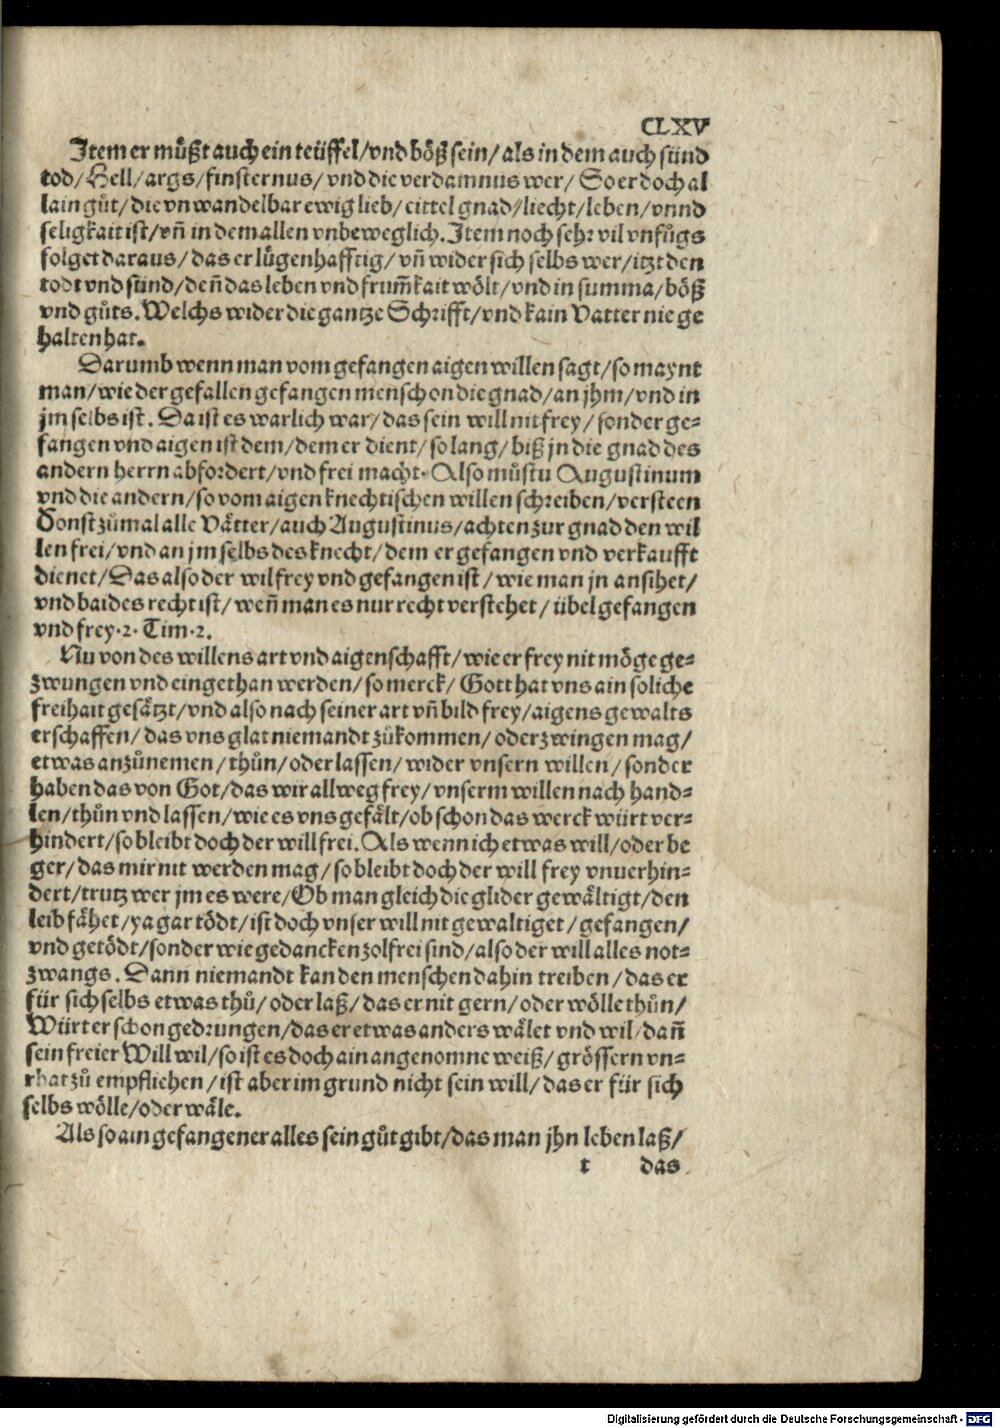 CLXV
Item er můßt auch ein teüffel/vnd böß sein/als in dem auch sünd
tod/Hell/args/finsternus/vnd die verdamnus wer/So er doch al
lain gůt/die vnwandelbar ewig lieb/eittel gnad/liecht/leben/vnnd
seligkait ist/vñ in dem allen vnbeweglich. Item noch sehr vil vnfůgs
folget daraus/das er lügenhafftig/vñ wider sich selbs wer/itzt den
todt vnd sünd/deñ das leben vnd frum̃kait wölt/vnd in summa/böß
vnd gůts. Welchs wider die gantze Schrifft/vnd kain Vatter nie ge
halten hat.
Darumb wenn man vom gefangen aigen willen sagt/so maynt
man/wie der gefallen gefangen mensch on die gnad/an jhm/vnd in
jm selbs ist. Da ist es warlich war/das sein will nit frey/sonder ge-
fangen vnd aigen ist dem/dem er dient/so lang/biß jn die gnad des
andern herrn abfordert/vnd frei macht. Also můstu Augustinum
vnd die andern/so vom aigen knechtischen willen schreiben/versteen
Sonst zůmal alle Vätter/auch Augustinus/achten zur gnad den wil
len frei/vnd an jm selbs des knecht/dem er gefangen vnd verkaufft
dienet/Das also der wil frey vnd gefangen ist/wie man jn ansihet/
vnd baides recht ist/weñ man es nur recht verstehet/übel gefangen
vnd frey. 2. Tim. 2.
Nu von des willens art vnd aigenschafft/wie er frey nit möge ge-
zwungen vnd eingethan werden/so merck/Gott hat vns ain soliche
freihait gesätzt/vnd also nach seiner art vñ bild frey/aigens gewalts
erschaffen/das vns glat niemandt zůkommen/oder zwingen mag/
etwas anzůnemen/thůn/oder lassen/wider vnsern willen/sonder
haben das von Got/das wir allweg frey/vnserm willen nach hand-
len/thůn vnd lassen/wie es vns gefält/ob schon das werck würt ver-
hindert/so bleibt doch der will frei. Als wenn ich etwas will/oder be
ger/das mir nit werden mag/so bleibt doch der will frey vnuerhin-
dert/trutz wer jm es were/Ob man gleich die glider gewältigt/den
leib fähet/ya gar tödt/ist doch vnser will nit gewaltiget/gefangen/
vnd getödt/sonder wie gedancken zolfrei sind/also der will alles not-
zwangs. Dann niemandt kan den menschen dahin treiben/das er
für sich selbs etwas thů/oder laß/das er nit gern/oder wölle thůn/
Würt er schon gedrungen/das er etwas anders wälet vnd wil/dañ
sein freier Will wil/so ist es doch ain angenomne weiß/grössern vn-
rhat zů empfliehen/ist aber im grund nicht sein will/das er für sich
selbs wölle/oder wäle.
Als so ain gefangener alles sein gůt gibt/das man jhn leben laß/
t das
Digitalisierung gefördert durch die Deutsche Forschungsgemeinschaft - DFG